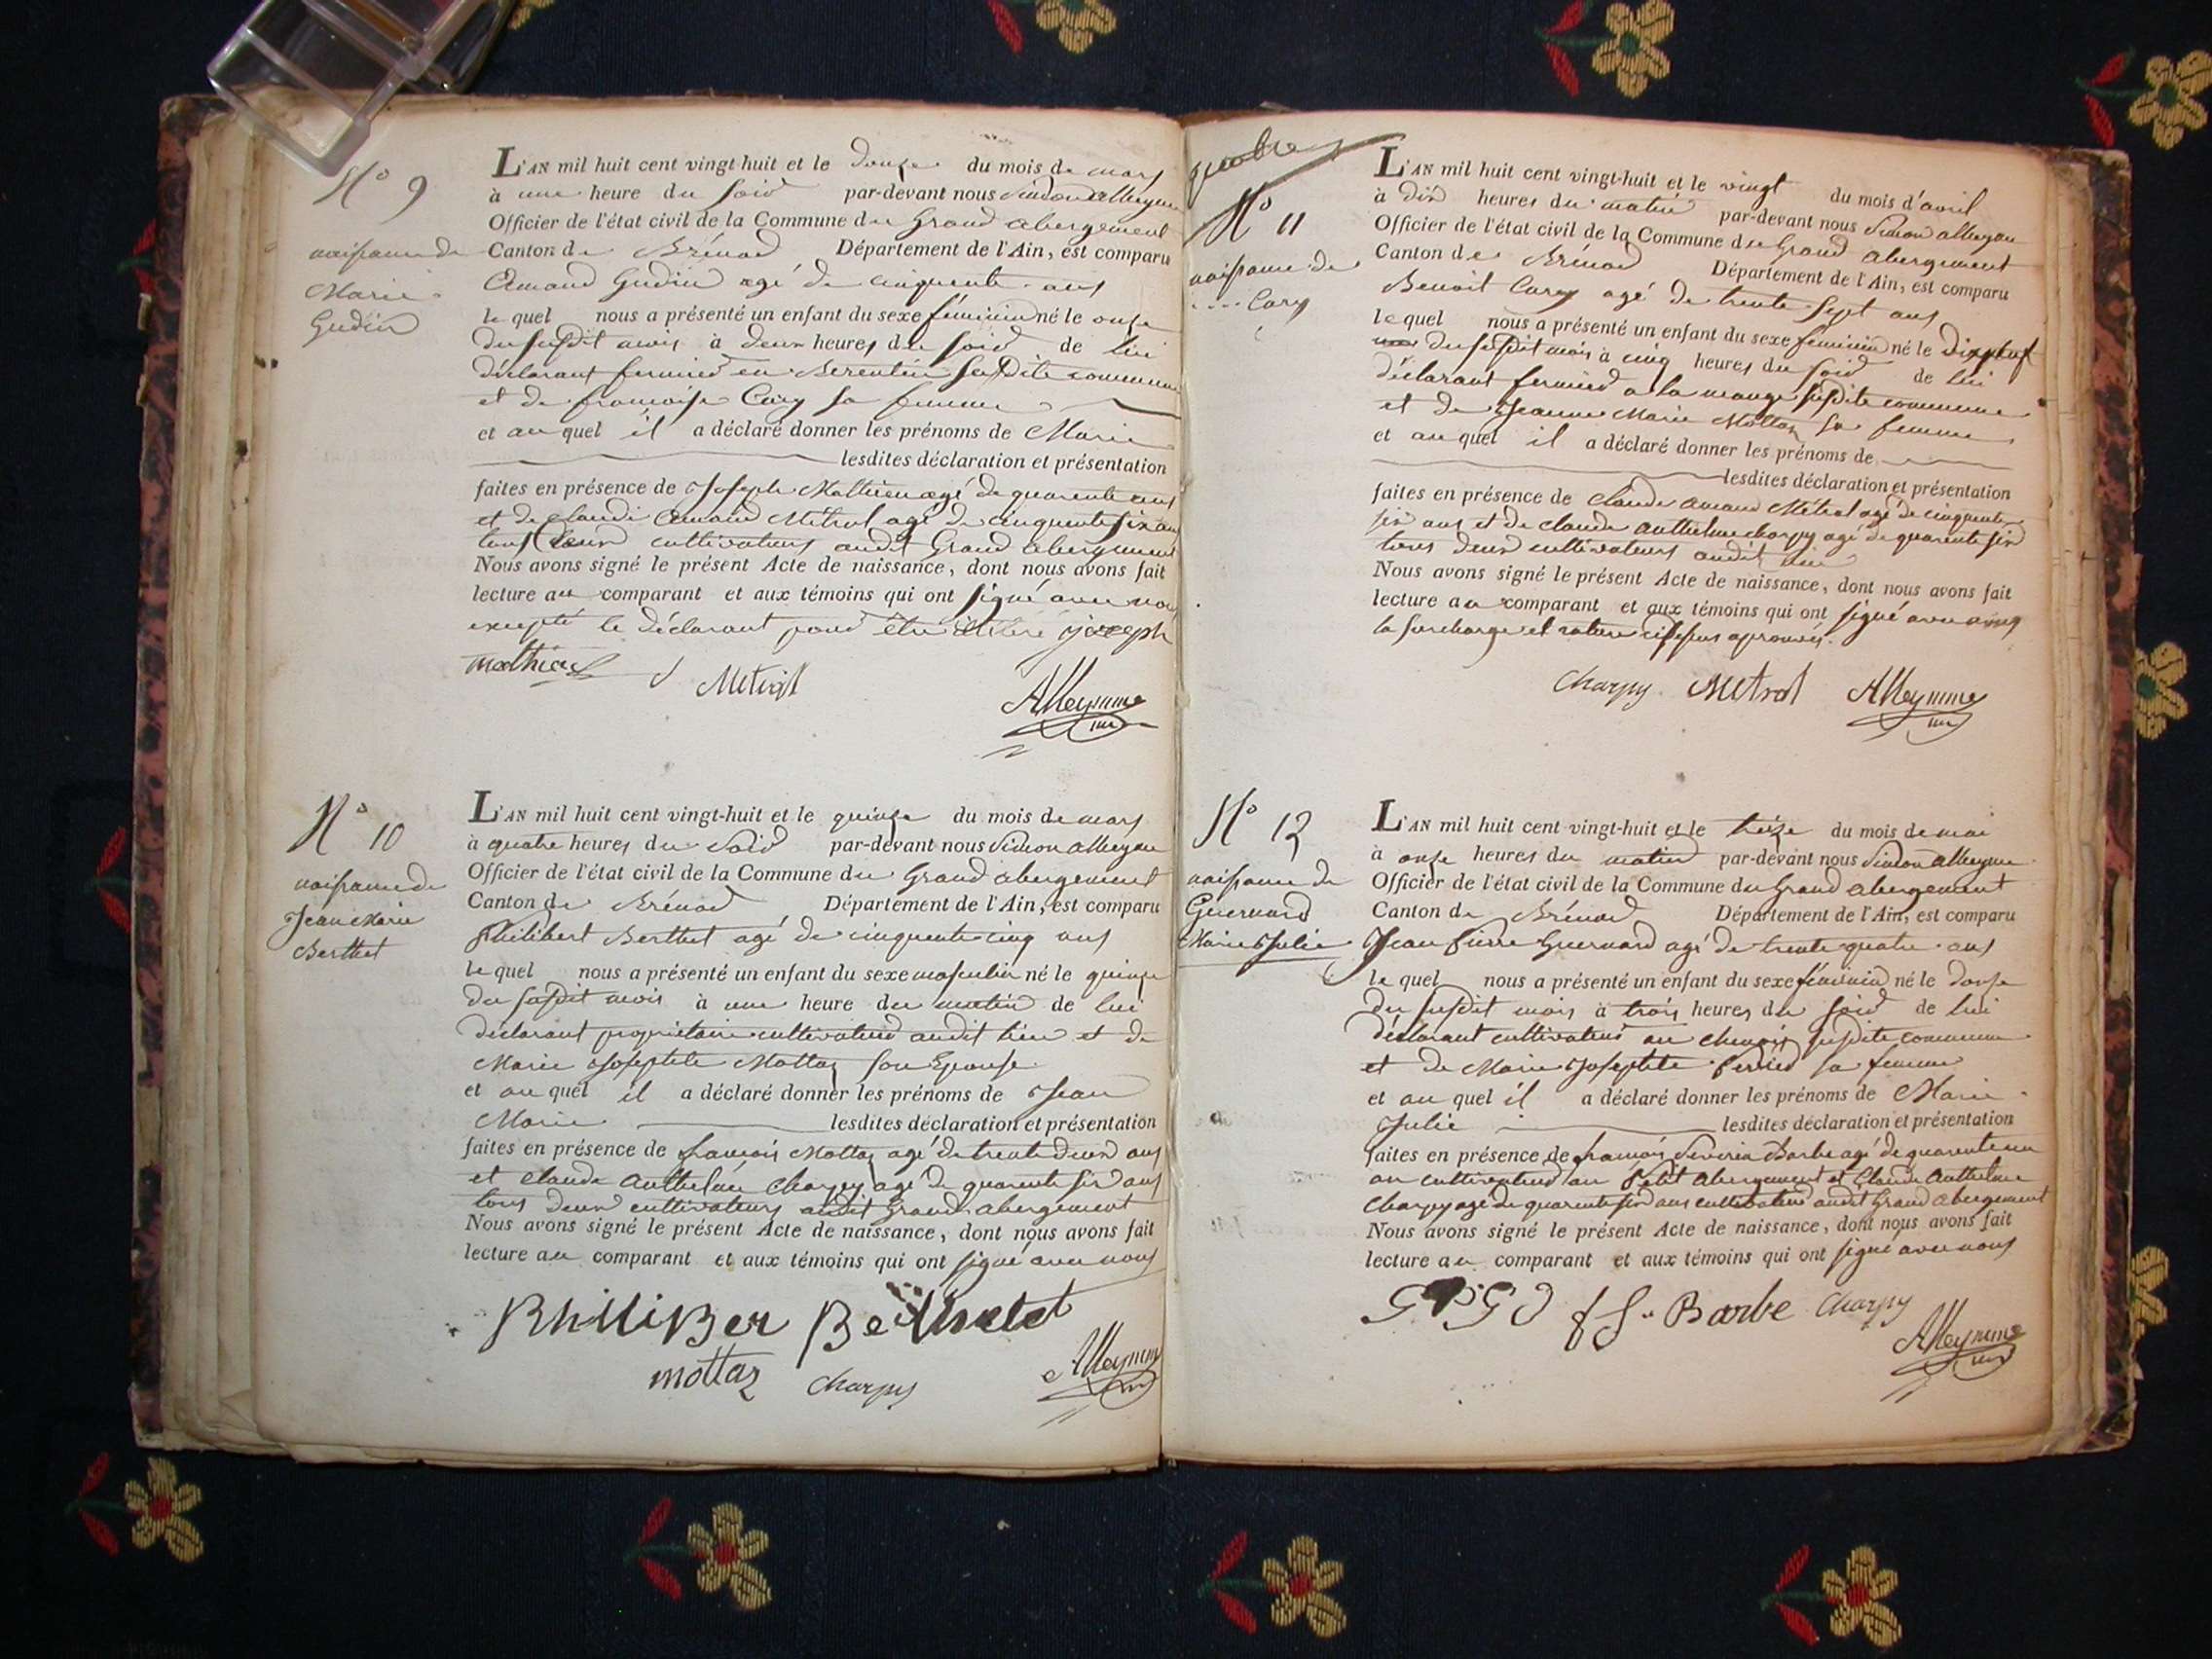 N° 9
naissance de
Marie
Gudin
L'AN mil huit cent vingt-huit et le douze du mois de mars
à une heure du soir par-devant nous Simon alleyme
Officier de l'état civil de la Commune du Grand abergement
Canton de Brénod Département de l'Ain, est comparu
Amand Gudin agé de cinquente ans
lequel nous a présenté un enfant du sexe féminin né le onze
du susdit mois à deux heures du soir de lui
déclarant fermier en Berentin susdite commune
et de francoise Cary sa femme
et au quel il a déclaré donner les prénoms de Marie
lesdites déclaration et présentation
faites en présence de Joseph Mathieu agé de quarente ans
et de claude Amand Métral agé de cinquente six ans
tous deux cultivateurs audit Grand abergement
Nous avons signé le présent Acte de naissance, dont nous avons fait
lecture au comparant et aux témoins qui ont signé avec nous
excepté le déclarant pour être illitéré joseph
mathieu Metral Alleymme
N° 10
naissance de
Jean Marie
Berthet
L'AN mil huit cent vingt-huit et le quinze du mois de mars
à quatre heures du soir par-devant nous Simon alleyme
Officier de l'état civil de la Commune du Grand abergement
Canton de Brénod Département de l'Ain, est comparu
Philibert Berthet agé de cinquente cinq ans
lequel nous a présenté un enfant du sexe masculin né le quinze
du susdit mois à une heure du matin de lui
déclarant propriétaire cultivateur audit lieu et de
Marie Josephte Mottaz son Epouse
et au quel il a déclaré donner les prénoms de Jean
Marie lesdites déclaration et présentation
faites en présence de francois Mottaz agé de trente deux ans
et claude Anthelme Charpy agé de quarente six ans
tous deux cultivateurs audit Grand abergement
Nous avons signé le présent Acte de naissance, dont nous avons fait
lecture au comparant et aux témoins qui ont signé avec nous
PhilliBer Berthelet
mottaz Charpy Alleymme
N° 11
naissance de
.... Cary
L'AN mil huit cent vingt-huit et le vingt du mois d'avril
à dix heures du matin par-devant nous Simon alleyme
Officier de l'état civil de la Commune du Grand abergement
Canton de Brénod Département de l'Ain, est comparu
Benoit Cary agé de trente sept ans
lequel nous a présenté un enfant du sexe feminin né le dixneuf
du susdit mois à cinq heures du soir de lui
déclarant fermier a la mange susdite commune
et de Jeanne Marie Mottaz sa femme
et au quel il a déclaré donner les prénoms de
lesdites déclaration et présentation
faites en présence de claude amand Métral agé de cinquente
six ans et de claude anthelme charpy agé de quarente six
tous deux cultivateurs audit lieu
Nous avons signé le présent Acte de naissance, dont nous avons fait
lecture au comparant et aux témoins qui ont signé avec nous
la surcharge et rature cidessus aprouvés.
Charpy Metral Alleymme
N° 12
naissance de
Guernard
Marie Julie
L'AN mil huit cent vingt-huit et le treize du mois de mai
à onze heures du matin par-devant nous Simon alleyme
Officier de l'état civil de la Commune du Grand abergement
Canton de Brénod Département de l'Ain, est comparu
Jean Pierre Guernard agé de trente quatre ans
lequel nous a présenté un enfant du sexe féminin né le douze
du susdit mois à trois heures du soir de lui
déclarant cultivateur au susdite commune
et de Marie Josephte sa femme
et au quel il a déclaré donner les prénoms de Marie
Julie lesdites déclaration et présentation
faites en présence de francois Séverin Barbe agé de quarente un
an cultivateur au Petit Abergement et Claude Anthelme
Charpy agé de quarente six ans cultivateur audit Grand abergement
Nous avons signé le présent Acte de naissance, dont nous avons fait
lecture au comparant et aux témoins qui ont signé avec nous
f S. Barbe Charpy
Alleymme